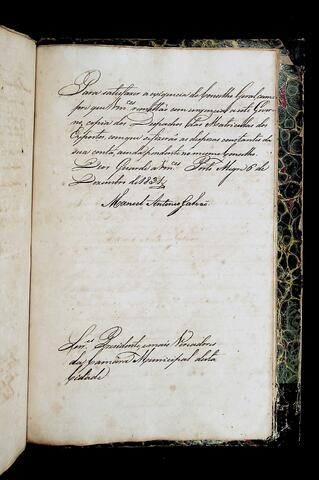 Para satisfazer a exigencia do Conselho Geral cum
pre que Vm.ces remettão com urgencia a este Gover
no, copia dos Despachos das Matriculas dos
Expostos, com que se fazem as despezas constantes da
sua conta, ainda pendente no mesmo Conselho.
Deos Guarde a Vm.ces Porto Alegre 6 de
Dezembro de 1831
Manoel Antonio Galvão
Snr.es Presidente, e mais Vereadores
da Camara Municipal desta
Cidade